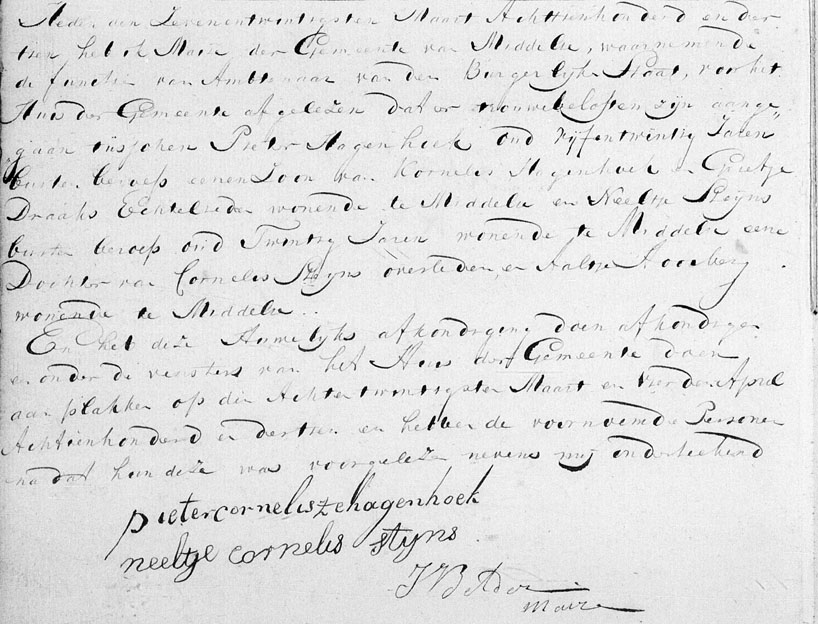 Heden den Zevenentwintigsten Maart Achttienhonderd en der
tien heb ik Maire der Gemeente van Middelie, waarnemende
de functie van Ambtenaar van den Burgerlyke Staat, voor het
Huis der Gemeente afgelezen dat er trouwbeloften zijn aange
gaan tusschen Pieter Hagenhoek oud vyfentwintig Jaren
buiten beroep eenen Zoon van Kornelis Hagenhoek en Grietje
Draaks Echtelieden wonende te Middelie en Neeltje Steyns
buiten beroep oud Twintig Jaren wonende te Middelie eene
Dochter van Cornelis Steyns overleden en Aaltje
wonende te Middelie
En heb deze Huwelyks afkondiging doen afkondigen
en onder de veinsters van het Huis der Gemeente doen
aanplakken op den Achtentwintigsten Maart en vierden April
Achttienhonderd en dertien en hebben de voornoemde Personen
na dat hun deze was voorgelezen nevens my onderteekend
pieter corneliszehagenhoek
neeltje cornelis styns
Maire